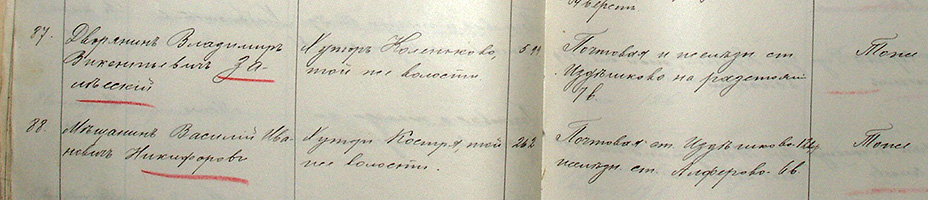 верстъ
87. Дворянинъ Владимиръ
Викентьевичъ За-
лѣсскій
Хуторъ Коленьково,
той же волости.
Почтовая и желѣзн. ст.
Издѣшково на разстояніи
7 в.
Тоже
88. Мѣщанинъ Василій Ива-
новичъ Никифоровъ
Хуторъ Костря, той
же волости.
262
Почтовая ст. Издѣшково
желѣзн. ст. Алферово 6 в.
Тоже